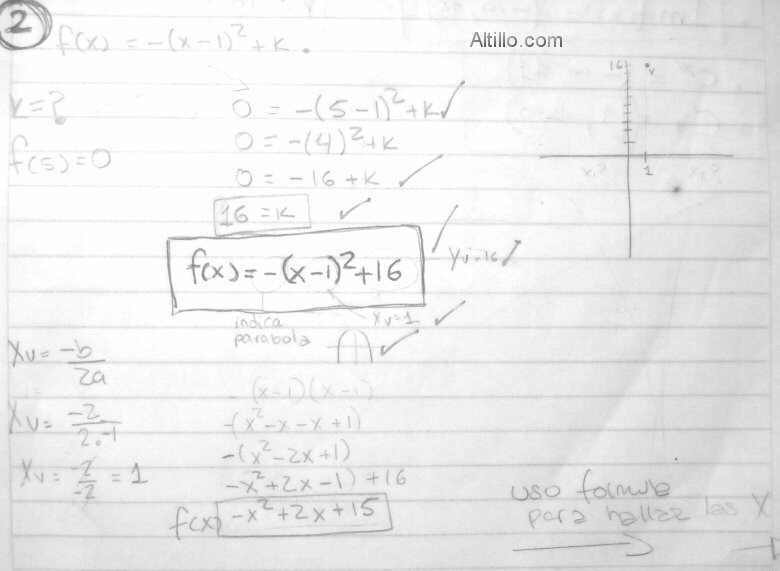 2
f(x) = -(x-1)² + k.
Altillo.com
k = ?
f(5) = 0
0 = -(5-1)² + k ✓
0 = -(4)² + k
0 = -16 + k ✓
16 = k ✓
f(x) = -(x-1)² + 16 ✓
Yv=16 ✓
indica
parabola
Xv=1 ✓
✓ ✓
Xv = -b/2a
Xv = -2/2.-1
Xv = -2/-2 = 1
-(x-1)(x-1)
-(x²-x-x+1)
-(x²-2x+1)
-x²+2x-1) + 16
f(x) -x²+2x+15
16
v
1
x₁?
x₂?
uso formula
para hallar las X